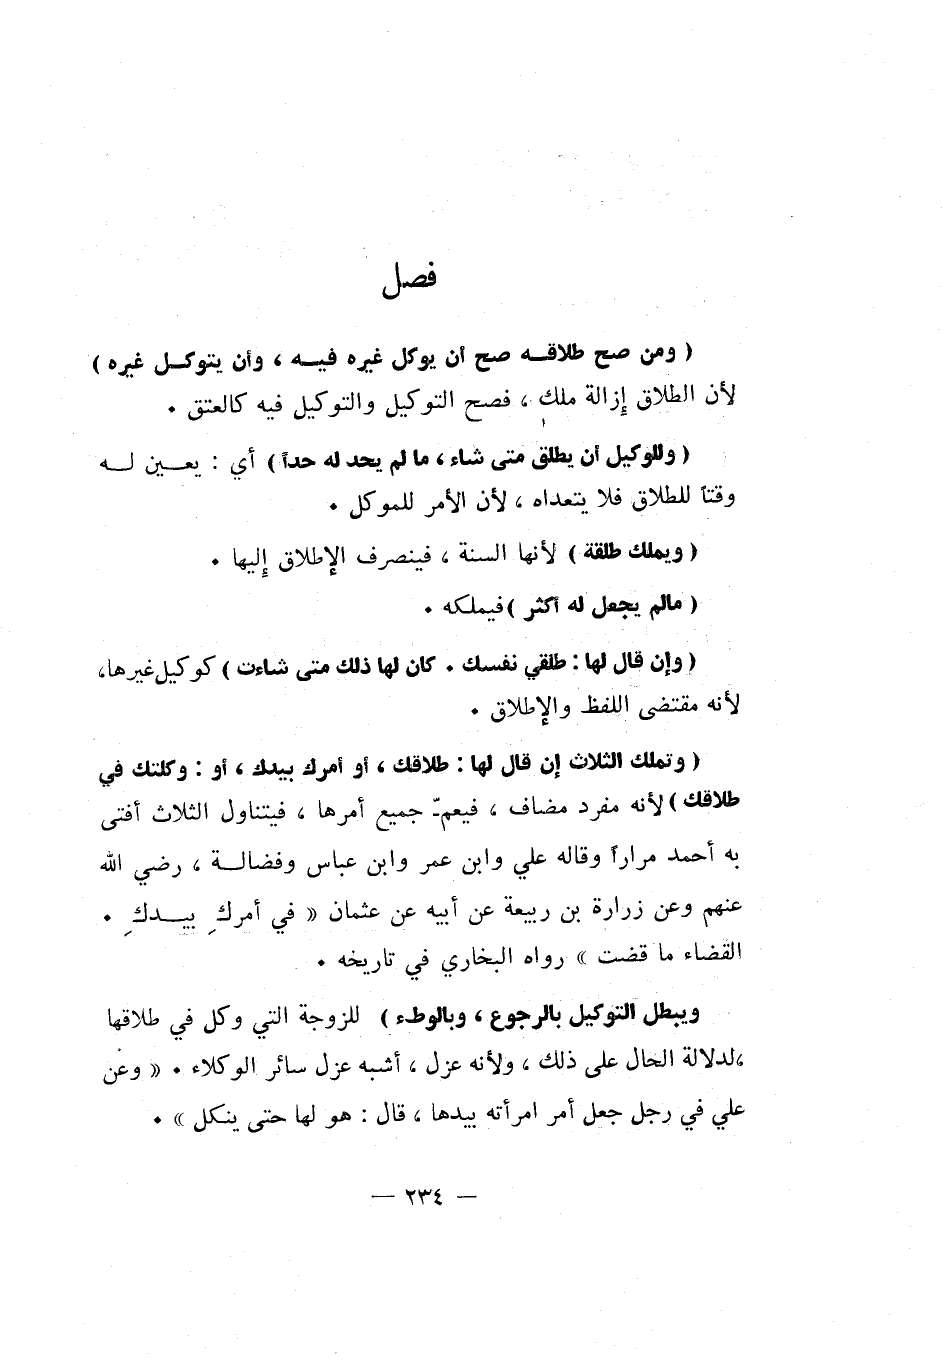 فصل
( ومن صح طلاقـه صح أن يوكل غيره فيـه ، وأن يتوكـل غيره )
لأن الطلاق إزالة ملك ، فصح التوكيل والتوكيل فيه كالعتق .
( وللوكيل أن يطلق متى شاء ، ما لم يحد له حداً ) أي : يعـين لـه
وقتاً للطلاق فلا يتعداه ، لأن الأمر للموكل .
( ويملك طلقة ) لأنها السنة ، فينصرف الإطلاق إليها .
( مالم يجعل له أكثر )فيملكه .
( وإن قال لها : طلقي نفسك . كان لها ذلك متى شاءت ) كوكيل غيرها،
لأنه مقتضى اللفظ والإطلاق .
( وتملك الثلاث إن قال لها : طلاقك ، أو أمرك بيدك ، أو : وكلتك في
طلاقك ) لأنه مفرد مضاف ، فيعمّ جميع أمرها ، فيتناول الثلاث أفتى
به أحمد مراراً وقاله علي وابن عمر وابن عباس وفضالـة ، رضي الله
عنهم وعن زرارة بن ربيعة عن أبيه عن عثمان « في أمركِ بيـدكِ .
القضاء ما قضت » رواه البخاري في تاريخه .
ويبطل التوكيل بالرجوع ، وبالوطء ) للزوجة التي وكل في طلاقها
،لدلالة الحال على ذلك ، ولأنه عزل ، أشبه عزل سائر الوكلاء . « وعن
علي في رجل جعل أمر امرأته بيدها ، قال : هو لها حتى ينكل » .
— ٢٣٤ —